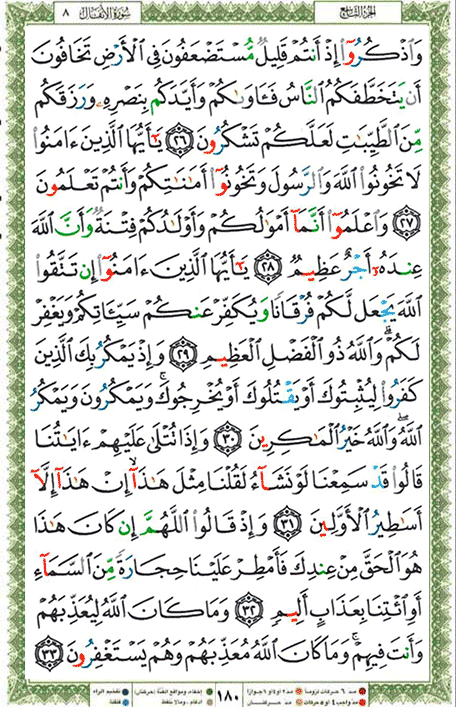 الجزء التاسع
سورة الأنفال ٨
وَاذْكُرُوٓا۟ إِذْ أَنتُمْ قَلِيلٌ مُّسْتَضْعَفُونَ فِى الْأَرْضِ تَخَافُونَ
أَن يَتَخَطَّفَكُمُ النَّاسُ فَـَٔاوَىٰكُمْ وَأَيَّدَكُم بِنَصْرِهِۦ وَرَزَقَكُم
مِّنَ الطَّيِّبَـٰتِ لَعَلَّكُمْ تَشْكُرُونَ ٢٦ يَـٰٓأَيُّهَا الَّذِينَ ءَامَنُوا۟
لَا تَخُونُوا۟ اللَّهَ وَالرَّسُولَ وَتَخُونُوٓا۟ أَمَـٰنَـٰتِكُمْ وَأَنتُمْ تَعْلَمُونَ
٢٧ وَاعْلَمُوٓا۟ أَنَّمَآ أَمْوَٰلُكُمْ وَأَوْلَـٰدُكُمْ فِتْنَةٌ وَأَنَّ اللَّهَ
عِندَهُۥٓ أَجْرٌ عَظِيمٌ ٢٨ يَـٰٓأَيُّهَا الَّذِينَ ءَامَنُوٓا۟ إِن تَتَّقُوا۟
اللَّهَ يَجْعَل لَّكُمْ فُرْقَانًا وَيُكَفِّرْ عَنكُمْ سَيِّـَٔاتِكُمْ وَيَغْفِرْ
لَكُمْ ۗ وَاللَّهُ ذُو الْفَضْلِ الْعَظِيمِ ٢٩ وَإِذْ يَمْكُرُ بِكَ الَّذِينَ
كَفَرُوا۟ لِيُثْبِتُوكَ أَوْ يَقْتُلُوكَ أَوْ يُخْرِجُوكَ ۚ وَيَمْكُرُونَ وَيَمْكُرُ
اللَّهُ ۖ وَاللَّهُ خَيْرُ الْمَـٰكِرِينَ ٣٠ وَإِذَا تُتْلَىٰ عَلَيْهِمْ ءَايَـٰتُنَا
قَالُوا۟ قَدْ سَمِعْنَا لَوْ نَشَآءُ لَقُلْنَا مِثْلَ هَـٰذَآ ۙ إِنْ هَـٰذَآ إِلَّآ
أَسَـٰطِيرُ الْأَوَّلِينَ ٣١ وَإِذْ قَالُوا۟ اللَّهُمَّ إِن كَانَ هَـٰذَا
هُوَ الْحَقَّ مِنْ عِندِكَ فَأَمْطِرْ عَلَيْنَا حِجَارَةً مِّنَ السَّمَآءِ
أَوِ ائْتِنَا بِعَذَابٍ أَلِيمٍ ٣٢ وَمَا كَانَ اللَّهُ لِيُعَذِّبَهُمْ
وَأَنتَ فِيهِمْ ۚ وَمَا كَانَ اللَّهُ مُعَذِّبَهُمْ وَهُمْ يَسْتَغْفِرُونَ ٣٣
مد ٦ حركات لزوماً مد ٢ أو ٤ أو ٦ جوازاً
مد واجب ٤ أو ٥ حركات مد حركتان
١٨٠
إخفاء، ومواقع الغنة (حركتان) تفخيم الراء
إدغام، وما لا يلفظ قلقلة